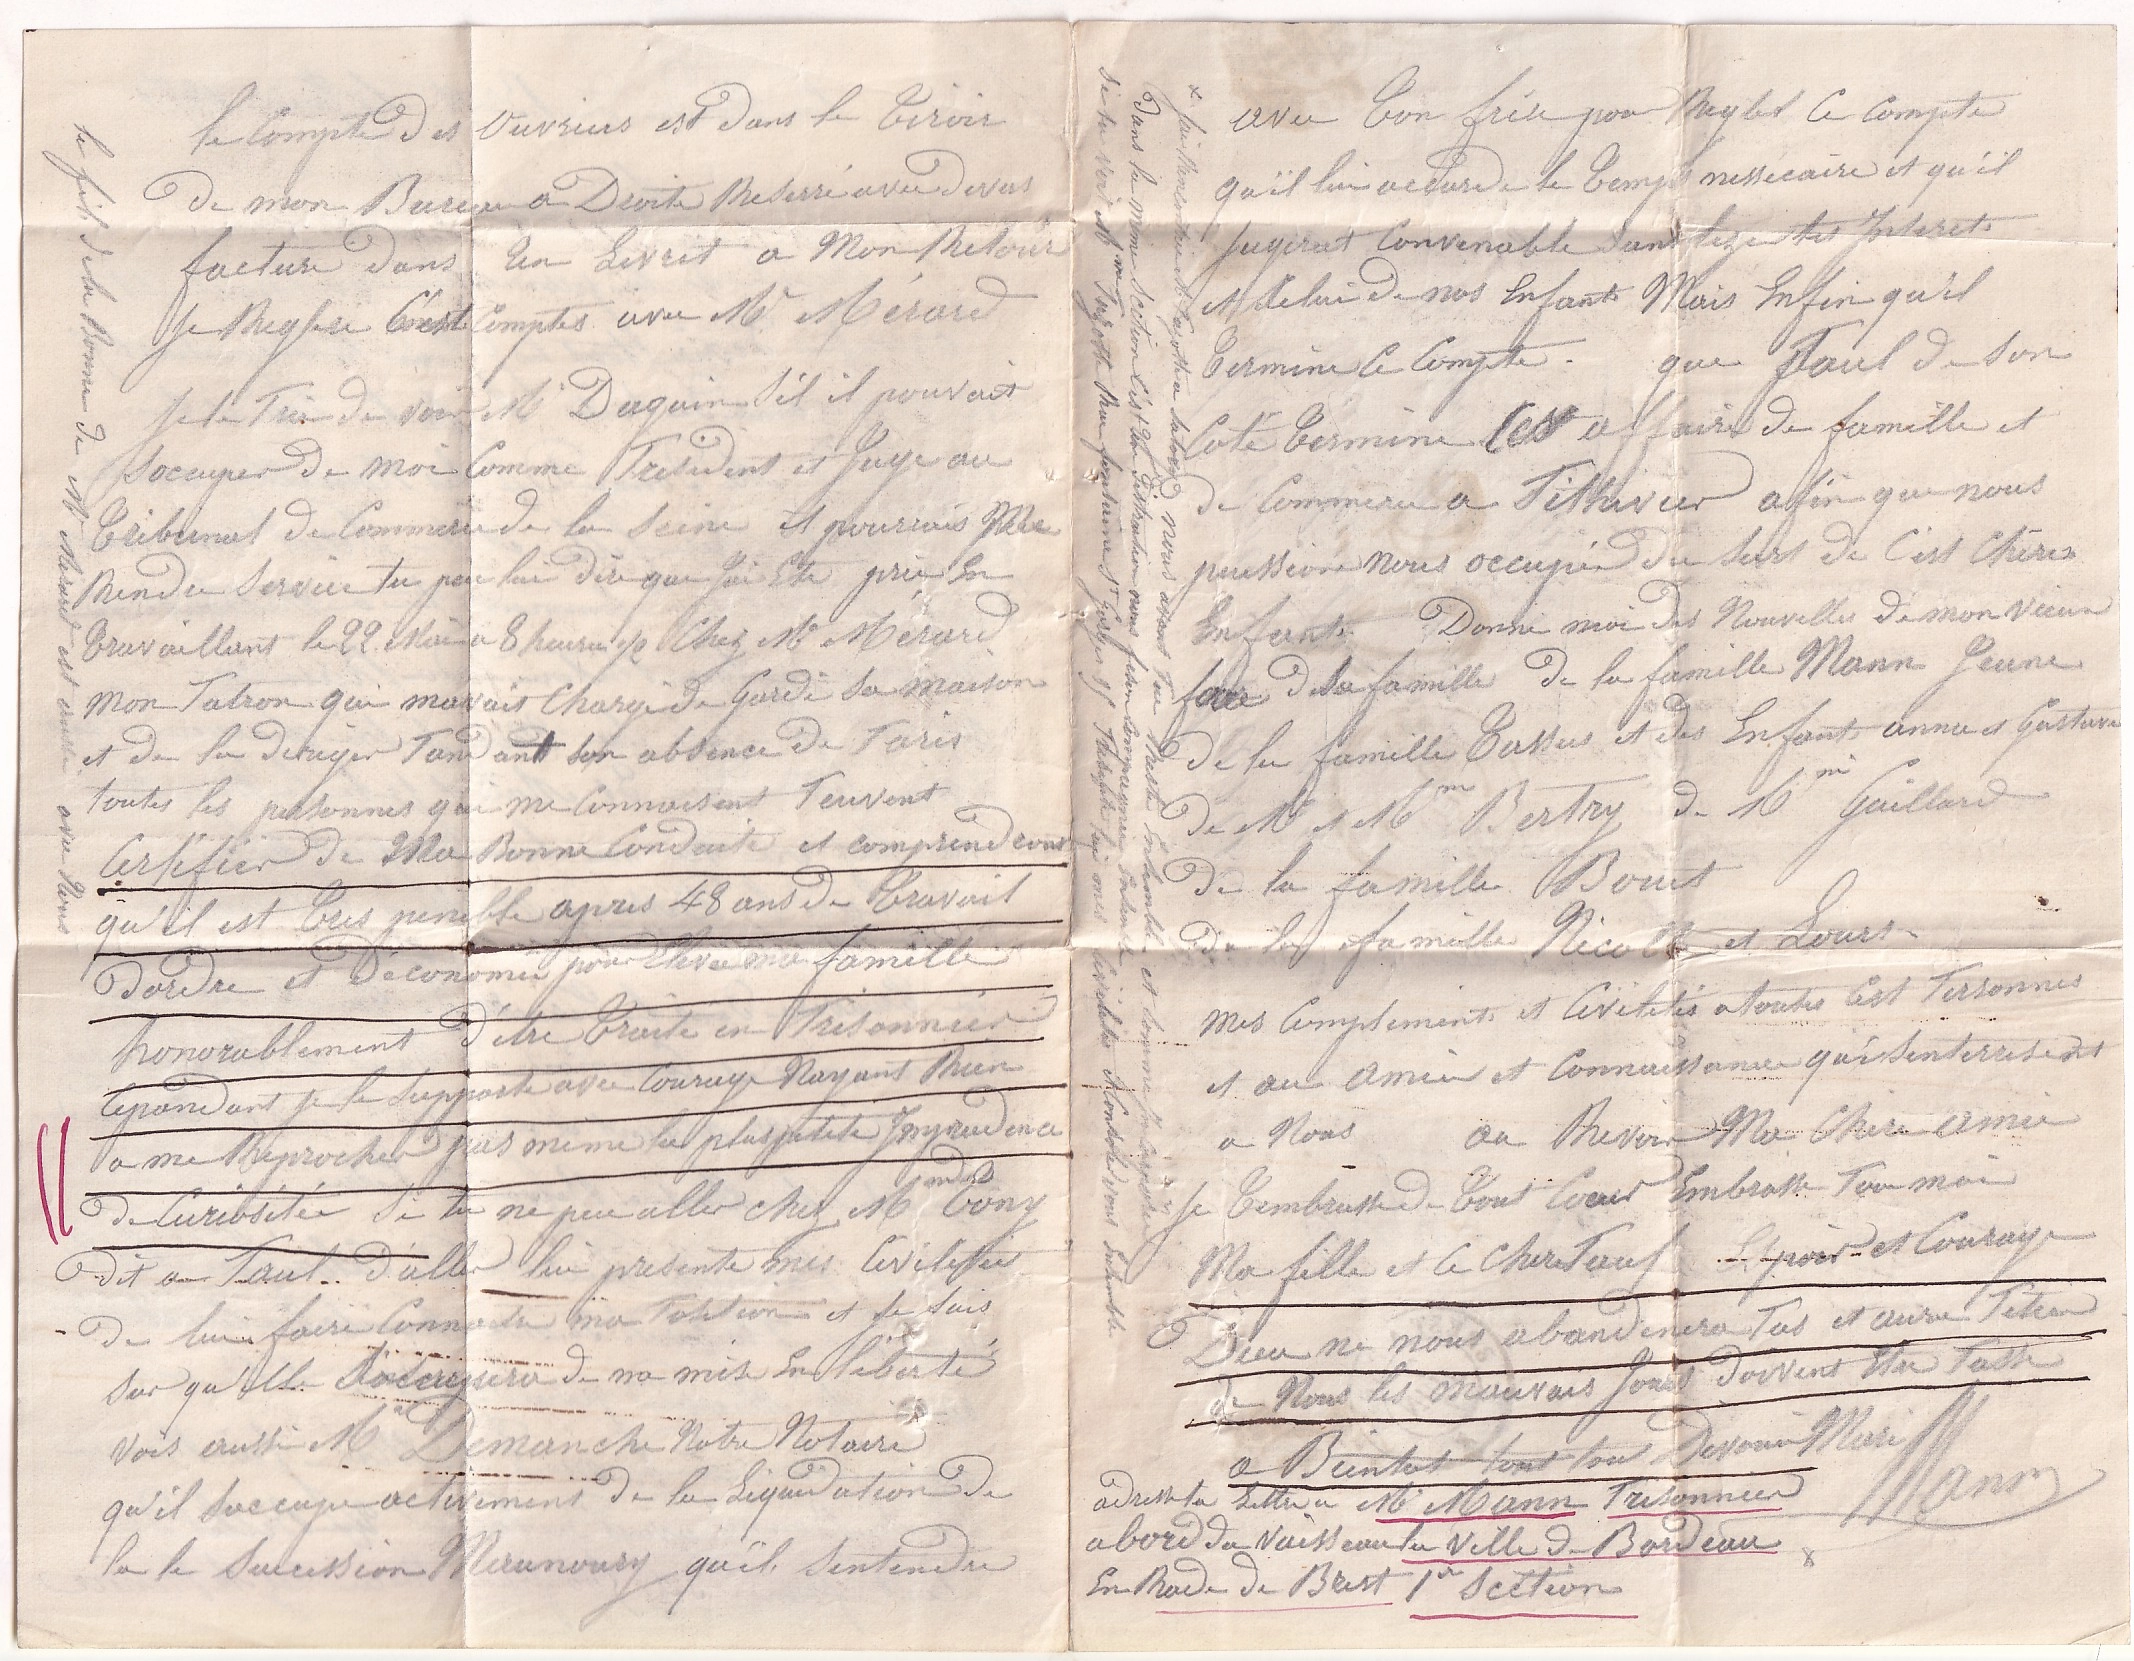 le Compte des Ouvriers est dans le Tiroir
De mon Bureau a Droite Reserré avec devis
facture dans un Livret a Mon Retour
Je Reglere C'est Comptes avec Mr Mérard
Je te Prie de voir Mr Daguin s'il il pouvait
s'ocuper de moi Comme President et Juge au
Tribunal de Commerce de la Seine il pourrais Me
Rendre Service tu peu lui dire que J'ai Ete pris En
Travaillant le 22 Mai a 8 heures 1/2 Chez Mr Mérard
mon Patron qui mavais Chargé de Gardé sa maison
et de la deriger Pandant son absence de Paris
toutes les personnes qui me Connaisent Peuvent
Certifier de Ma Bonne Conduite et comprendront
qu'il est tres penible apres 48 ans de Travail
Dordre et D'economie pour Elever ma famille
honorablement D'être Traité en Prisonnier
Cepandant je le Supporte avec Courage Nayant Rien
a me Reprocher pas meme la plus petite Imprudence
De Curiositée Si tu ne peu aller chez Mme Tony
Dit a Paul D'aller lui presente mes Civilitée
De lui faire Connaitre ma Position et je suis
sur qu'Elle s'occupera de ma mise En liberté
vois aussi Mr Demanche Notre Notaire
qu'il soccupe activement de la Liquidation De
la le Succession qu'il sentendre
le fils de la Bonne de Mr Mérard est avec Nous
avec ton frere pour Regler Ce Compte
qu'il lui accorde le temps nessecaire et qu'il
Jugerat Convenable sans leze les Interets
et Celui de nos Enfants Mais Enfin qu'il
Termine Ce Compte. que Paul de son
Coté termine les affaire de famille et
de Commerce a Pithivier afin que nous
puission nous occupé du Sort de C'est Chéres
Enfants Donne moi des Nouvelles de mon vieux
de sa famille De la famille Mann Jeune
De la famille Tassus et des Enfants anna et Gustave
De Mr et Mme Bertry de Mme Gaillard
De la famille Bouet
De la famille Nicolle et Lours
mes Compliments et Civilités a toutes C'est Personnes
et au amie et Connaissance qui sinterrisent
a Nous au Revoir Ma Chere amie
Je t'embrasse de tout Coeur Embrasse Pour moi
Ma fille et Ce Chere Paul Espoir et Courage
Dieu ne nous abandonera Pas et aura Pitier
de Nous les mauvais Jours doivent Etre Passé
a Bientot tout ton Devoué Mari
Mann
adresse ta Lettre a Mr Mann Prisonnier
abord du vaisseau la Ville de Bordeau
En Rade de Brest 1re Section
x nous avons
Dans la meme Section C'est une distraction nous
Si tu vois Mr